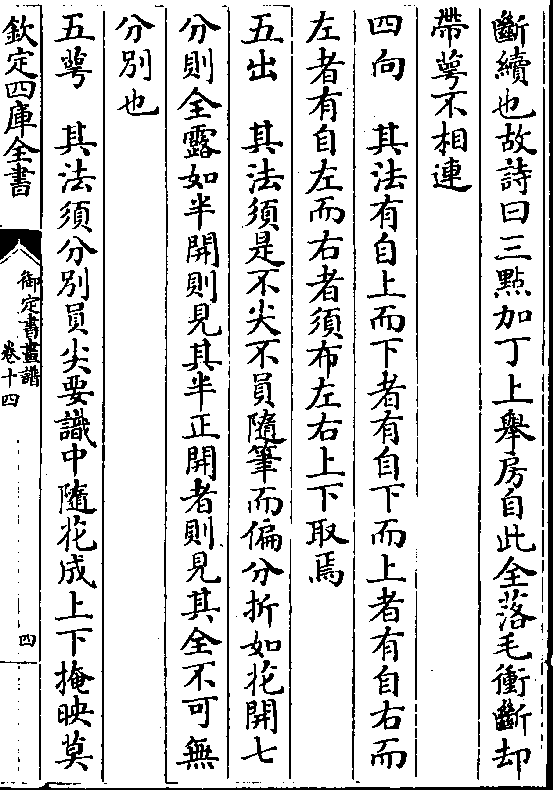 斷續也故詩曰三點加丁上舉房自此全落毛衝斷却
帶萼不相連
四向　其法有自上而下者有自下而上者有自右而
左者有自左而右者須布左右上下取焉
五出　其法須是不尖不員隨筆而偏分折如花開七
分則全露如半開則見其半正開者則見其全不可無
分別也
五萼　其法須分別員尖要識中隨花成上下掩映莫
欽定四庫全書
御定書畫譜
卷十四
四